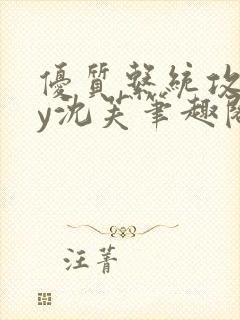 優質繫統攻
y沈芙筆趣閣
汪菁